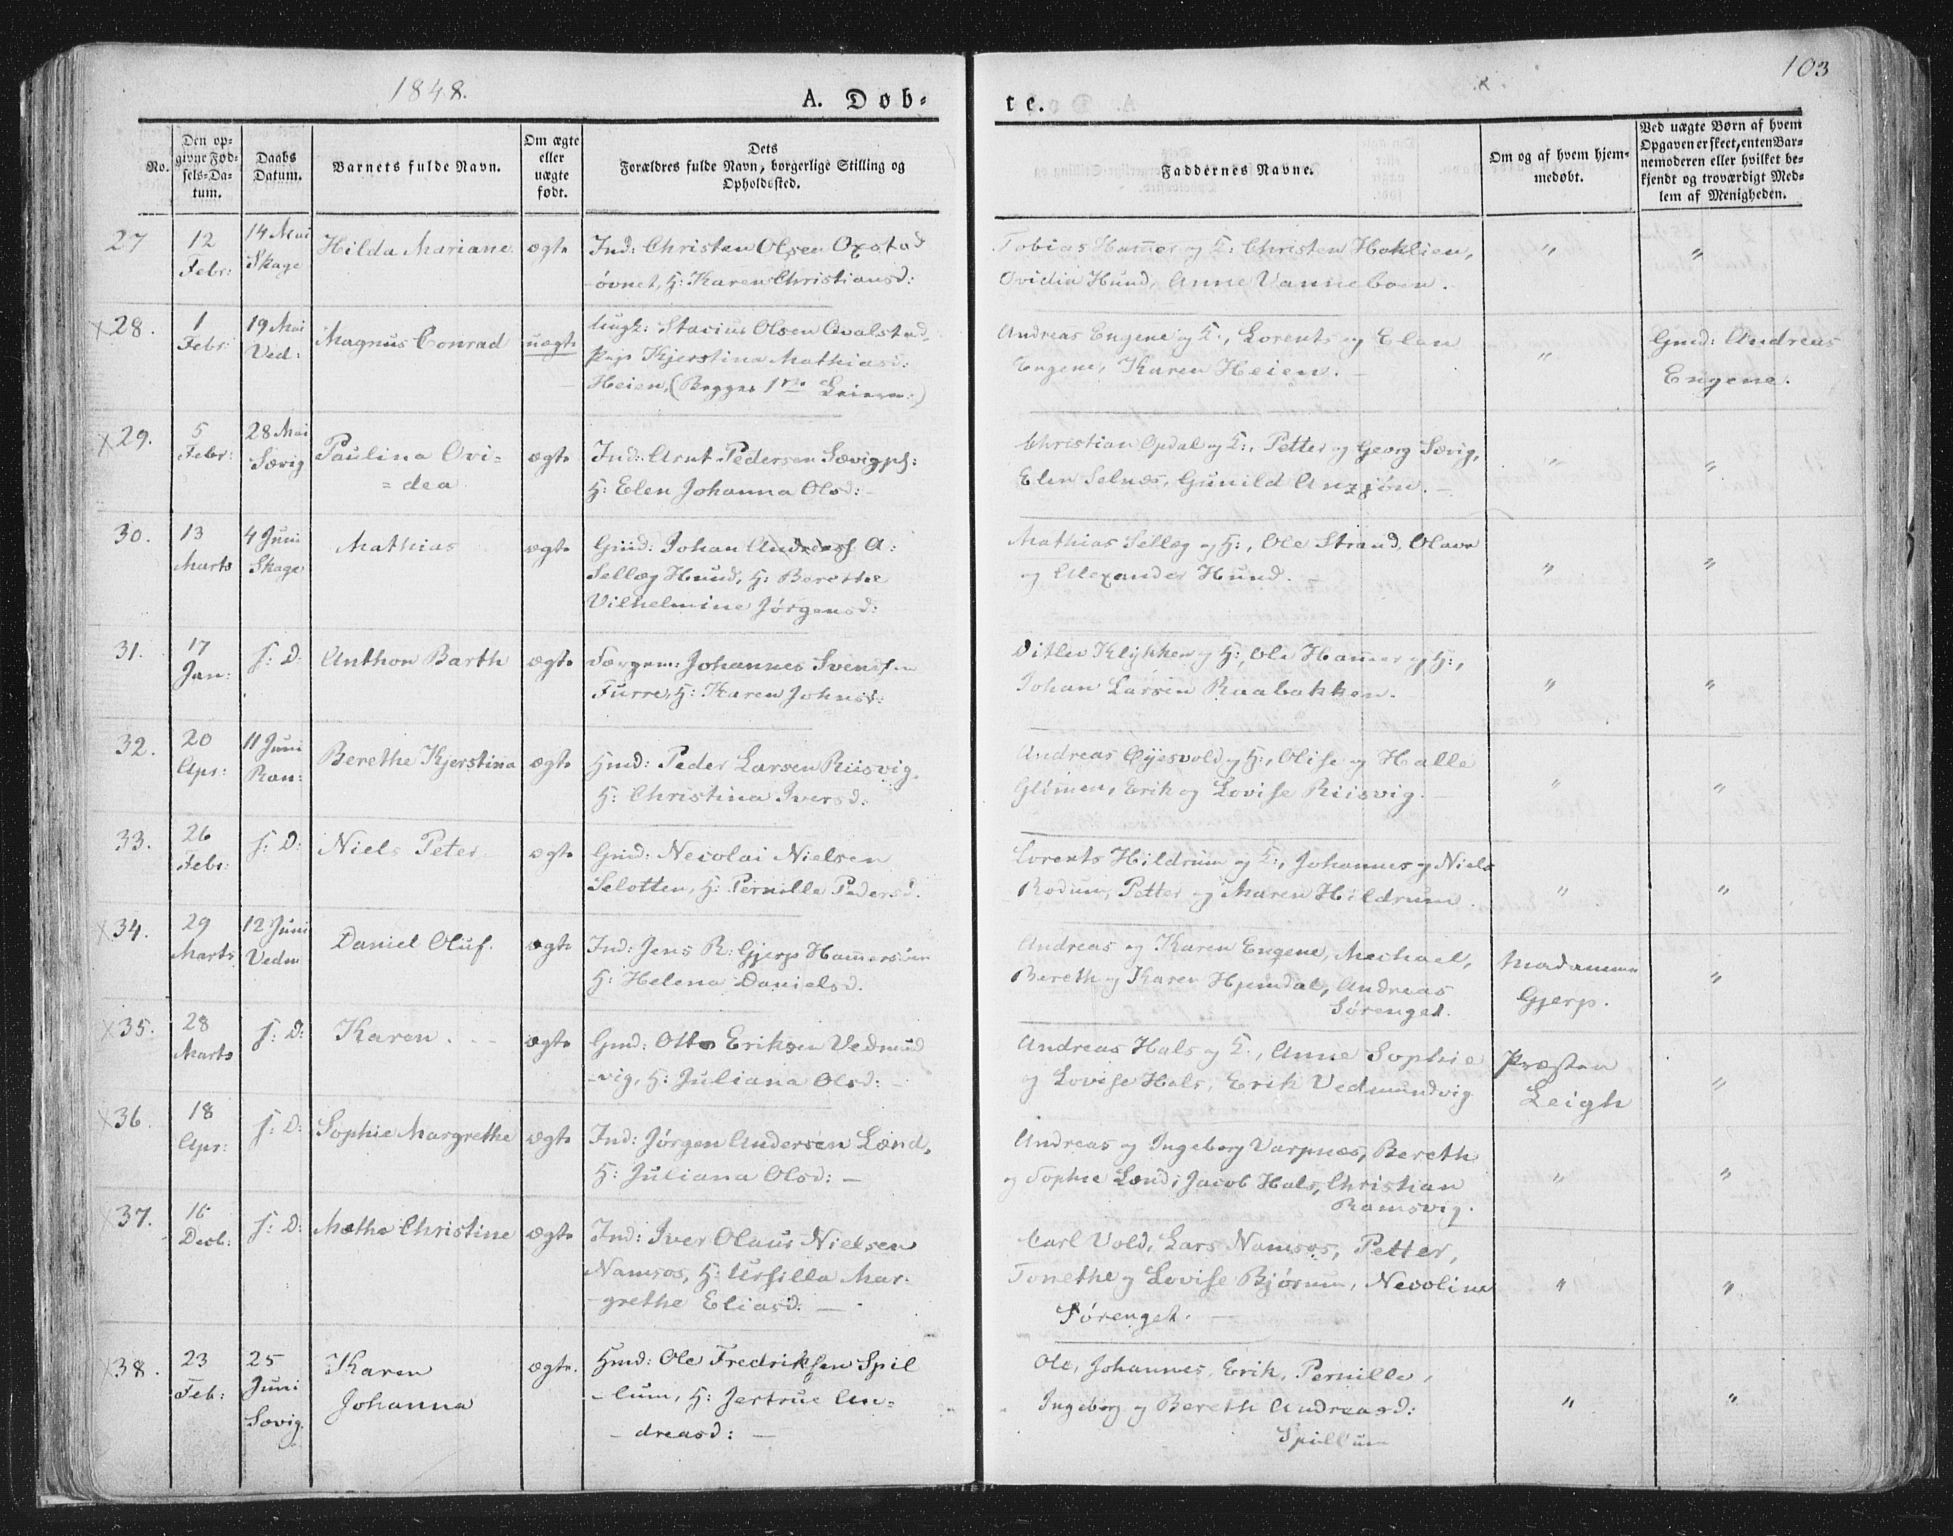 1848.
A. Døb-
te.
103
No.
Den op-
givne Fød-
sels-Da-
tum.
Daabs
Datum.
Barnets fulde Navn.
Om ægte
eller
uægte
født.
Dets
Forældres fulde Navn, borgerlige Stilling og
Opholdssted.
Faddernes Navne.
Om og af hvem hjem-
medøbt.
Ved uægte Børn af hvem
Opgaven er skeet, enten Bar-
nemoderen eller hvilket be-
kjendt og troværdigt Med-
lem af Menigheden.
27
12
Febr:
14 Mai
Skage
Hilda Mariane
ægte
Ind: Christen Olsen Oxstad
-øvnet, H: Karen Christiansd:
Tobias Hammer og K: Christen Hoklien,
Ovidia Hund, Anne Vanneboen.
"
"
x28.
1
Febr:
19 Mai
Ved:
Magnus Conrad
uægte
Ungk: Stacius Olsen Avalstad,
Pige Kjerstina Mathiasd:
Heien, (Begges 1ste Leierm:)
Andreas Engene og K:, Lorents og Elen
Engene, Karen Heien.
"
Gmd: Andreas
Engene.
x29.
5
Febr:
28 Mai
Sævig
Paulina Ovi-
=dea
ægte
Ind: Arnt Pedersen Sævigpl:
H: Elen Johanna Olsd: -
Christian Opdal og K:, Petter og Georg Sævig,
Elen Selnæs, Gunild Anzjøn. -
"
"
30.
13
Marts
4 Juni
Skage
Mathias
ægte
Gmd: Johan Andreas A:
Sellæg Hund, H: Berethe
Vilhelmine Jørgensd:
Mathias Sellæg og H:, Ole Strand, Olava
og Alexander Hund.
"
"
31.
17
Jan:
f: D:
Anthon Barth
ægte
Sergem: Johannes Svensen
Furre, H: Karen Johnsd:
Ditlev Klykken og H:, Ole Hammer og H:,
Johan Larsen Raabakken.
"
"
32.
20
Apr:
11 Juni
Ran:
Berethe Kjerstina
ægte
Hmd: Peder Larsen Riisvig,
H: Christina Iversd.
Andreas Øyesvold og H:, Olise og Halle
Glømen, Erik og Lovise Riisvig. -
"
"
33.
26
Febr:
f: D:
Niels Peter
ægte
Gmd: Necolai Nielsen
Selotten, H: Pernille Pedersd.
Lorents Hildrum og K:, Johannes og Niels
Rodum, Petter og Maren Hildrum.
"
"
34.
29
Marts
12 Juni
Vedm
Daniel Oluf.
ægte
Ind: Jens R: Gjerp Hammersøen
H: Helena Danielsd.
Andreas og Karen Engene, Mechael,
Bereth og Karen Hjemdal, Andreas
Sørenget.
Madamme
Gjerp.
"
x35.
28
Marts
f: D:
Karen.
ægte
Gmd: Otto Eriksen Vedmund
-vig, H: Juliana Olsd: -
Andreas Hals og K:, Anne Sophie
og Lovise Hals, Erik Vedmundvig
Præsten
Leigh
"
x36.
18
Apr:
f: D:
Sophie Margrethe
ægte
Ind: Jørgen Andersen Lænd,
H: Juliana Olsd: -
Andreas og Ingeborg Varpnæs, Bereth
og Sophie Lænd, Jacob Hals, Christian
Ramsvig.
"
"
x37.
16
Decb:
f: D:
Methe Christine
ægte
Ind: Iver Olaus Nielsen
Namsos, H: Ursilla Mar-
-grethe Eliasd. -
Carl Vold, Lars Namsos, Petter,
Tonethe og Lovise Bjørum, Necoline
Sørenget. -
"
"
x38.
23
Feb:
25
Juni
Sævig.
Karen
Johanna
ægte.
Hmd: Ole Fredriksen Spil
-lum, H: Jertrue An-
-dreasd: -
Ole, Johannes, Erik, Pernille,
Ingeborg og Bereth Andreasd:
Spillum
"
"